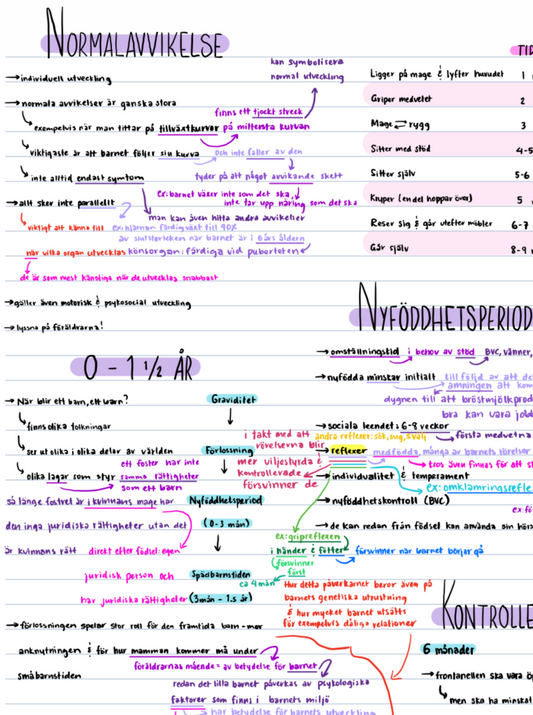 NORMALAVVIKELSE
kan symbolisera
normal utveckling
→ individuell utveckling
→ normala avvikelser är ganska stora
finns ett tjockt streck
exempelvis när man tittar på tillväxtkurvor på mittersta kurvan
viktigaste är att barnet följer sin kurva och inte faller av den
inte alltid endast symtom
tyder på att något avvikande skett
ex: barnet växer inte som det ska,
inte tar upp näring som det ska
→ allt sker inte parallellt
man kan även hitta andra avvikelser
viktigt att känna till
ex: hjärnan färdigväxt till 90%
av slutstorleken när barnet är i 6års åldern
når vilka organ utvecklas
könsorgan: färdiga vid puberteten
de är som mest känsliga när de utvecklas snabbast
→ gäller även motorisk & psykosocial utveckling
→ lyssna på föräldrarna!
TID
Ligger på mage & lyfter huvudet 1
Griper medvetet 2
Mage ⇄ rygg 3
Sitter med stöd 4-5
Sitter själv 5-6
Kryper (en del hoppar över) 5
Reser sig & går utefter möbler 6-7
Går själv 8-9
0 - 1 ½ ÅR
→ När blir ett barn, ett barn?
finns olika tolkningar
ser ut olika i olika delar av världen
olika lagar som styr
ett foster har inte
samma rättigheter
som ett barn
så länge fostret är i kvinnans mage har
den inga juridiska rättigheter utan det
är kvinnans rätt
direkt efter födsel: egen
juridisk person och
har juridiska rättigheter
→ förlossningen spelar stor roll för den framtida barn-mor
anknytningen & för hur mamman kommer må under
småbarnstiden
föräldrarnas mående = av betydelse för barnet
redan det lilla barnet påverkas av psykologiska
faktorer som finns i barnets miljö
har betydelse för barnets utveckling
Graviditet
Förlossning
Nyföddhetsperiod
(0-3 mån)
Spädbarnstiden
(3mån - 1.5 år)
NYFÖDDHETSPERIOD
→ omställningstid i behov av stöd BVC, vänner,
→ nyfödda minskar initialt till följd av att de
amningen att kom
dygnen till att bröstmjölkprod
bra kan vara jobb
→ sociala leendet: 6-8 veckor
första medvetna
andra reflexer: sök, sug, svälj
→ reflexer medfödda, många av barnets rörelser
tros även finnas för att s
i takt med att
rörelserna blir
mer viljestyrda &
kontrollerade
försvinner de
→ individualitet & temperament
ex: omklamringsrefle
→ nyföddhetskontroll (BVC)
→ de kan redan från födsel kan använda sin hörs
ex: gripreflexen
i händer & fötter
försvinner när barnet börjar gå
försvinner
först
ca 4 mån
Hur detta påverkar beror även på
barnets genetiska utrustning
& hur mycket barnet utsätts
för exempelvis dåliga relationer
KONTROLLE
6 månader
→ frontanellen ska vara öp
men ska ha minskat